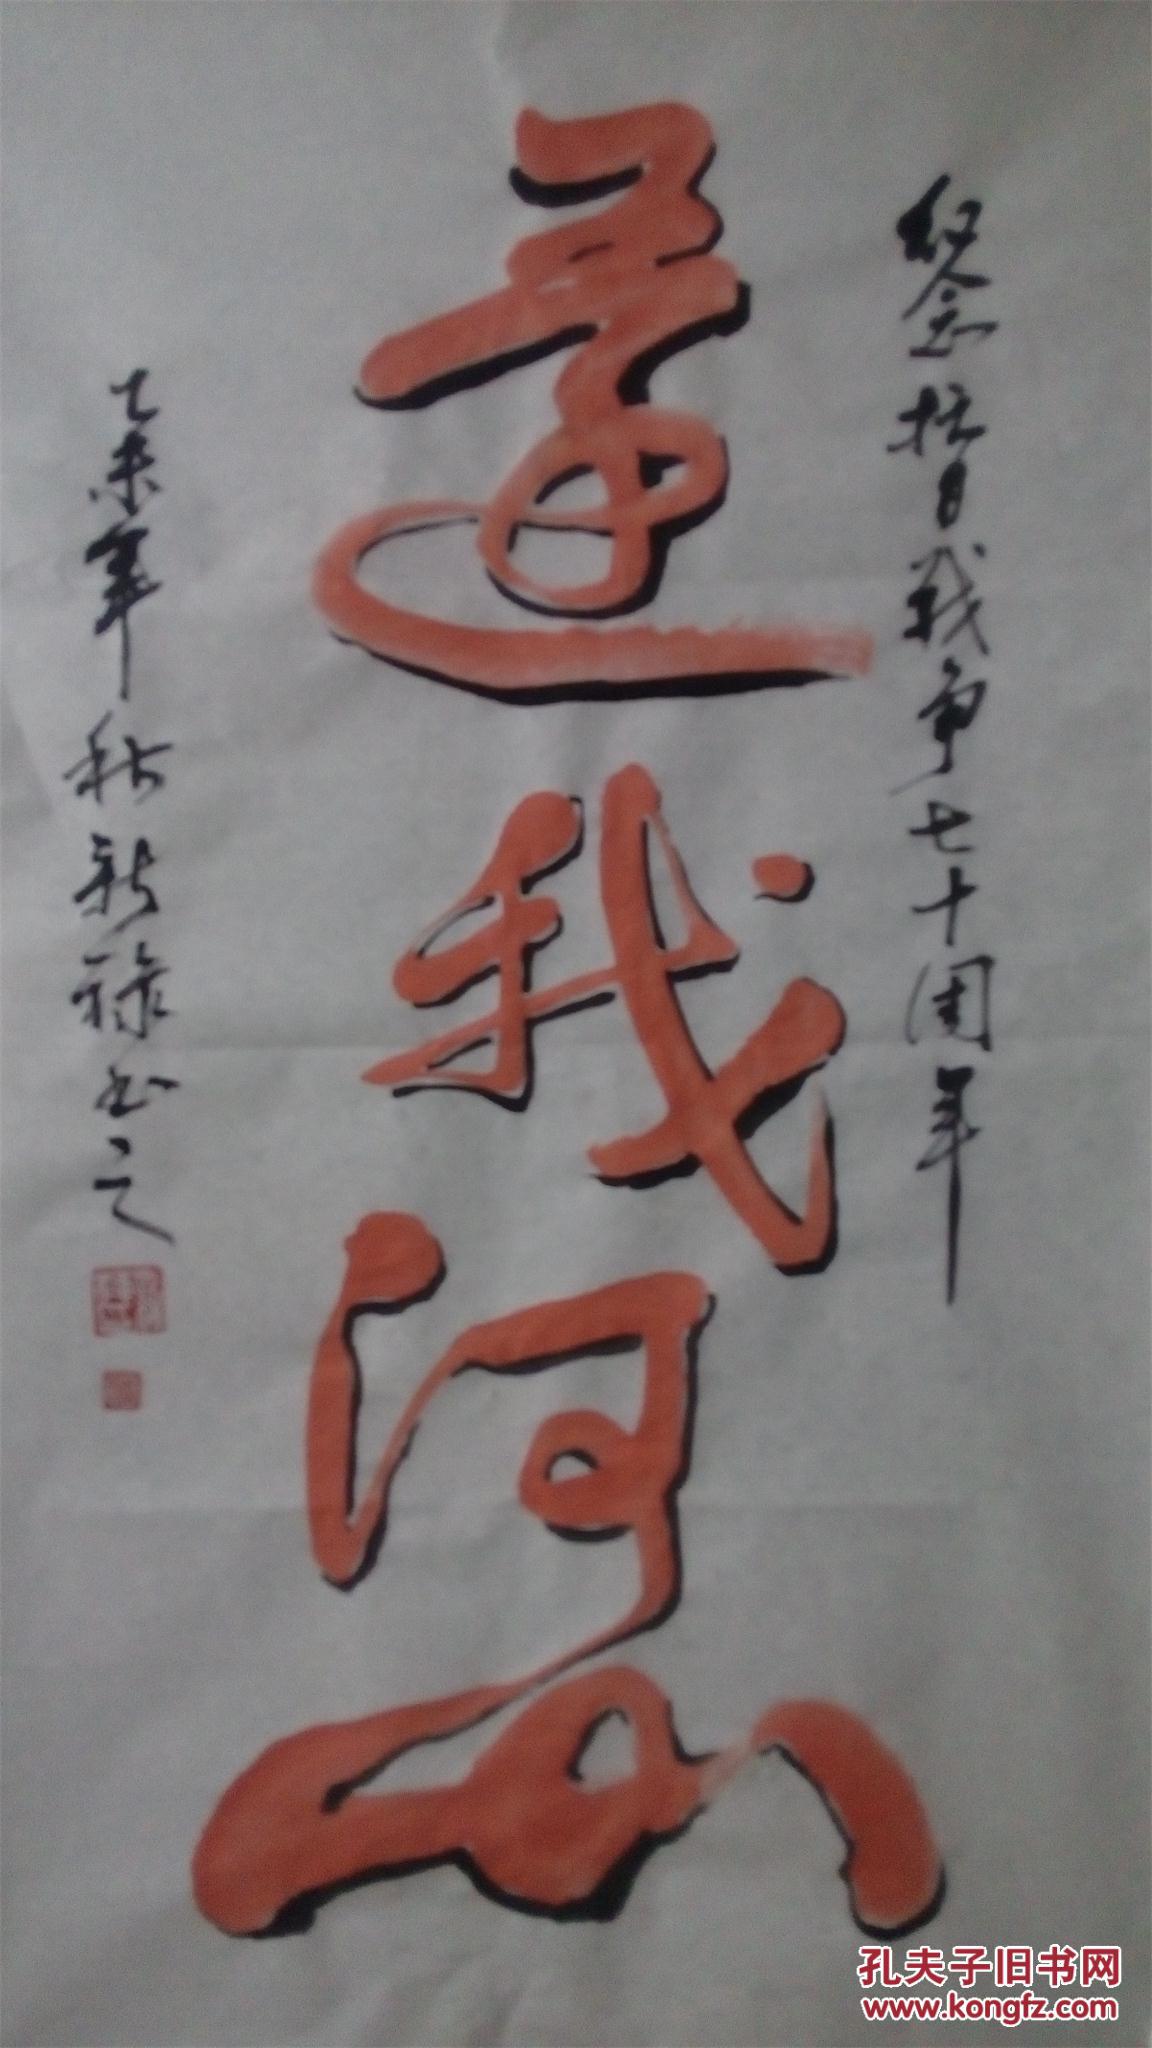 纪念抗日战争七十周年
還我河山
乙未年秋新禄书之
孔夫子旧书网
www.kongfz.com